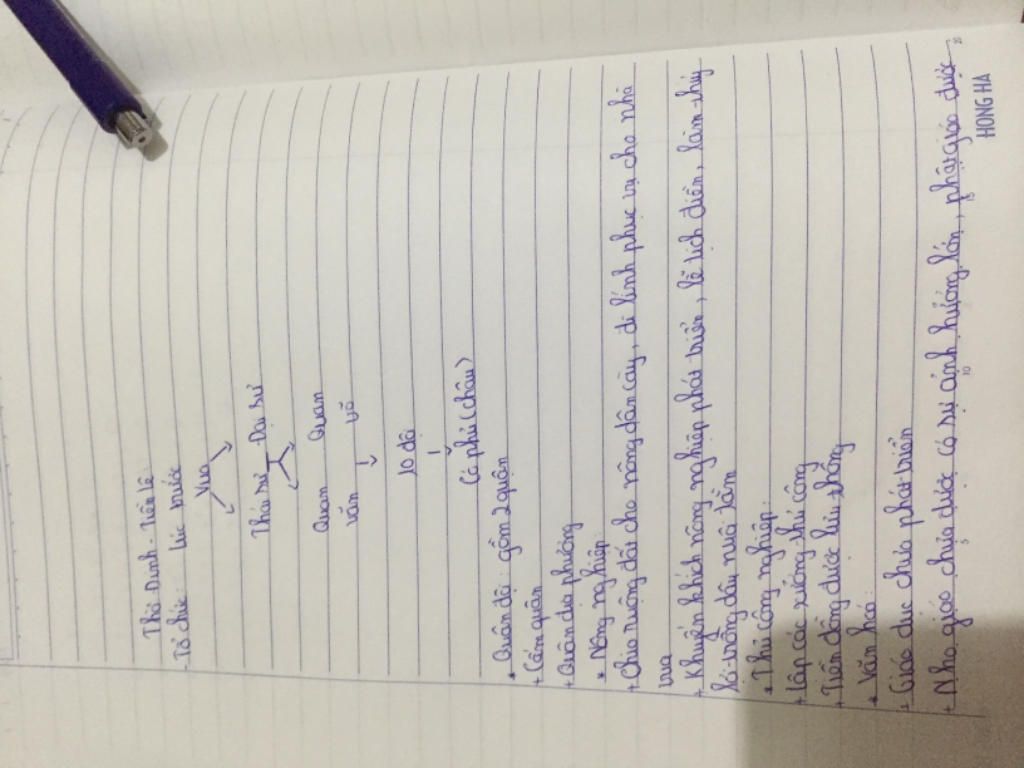 Thời Đinh - Tiền Lê
- Tổ chức: lúc trước
Vua
Thái sư - Đại sư
Quan Quan
văn võ
10 đô
Cá phủ (châu)
* Quân đội: gồm 2 quân
+ Cấm quân
+ Quân địa phương
* Nông nghiệp:
+ Chia ruộng đất cho nông dân cày, đi lính phục vụ cho nhà
vua
+ Khuyến khích nông nghiệp phát triển, lễ tịch điền, làm thủy
lợi - trồng dâu, nuôi tằm
* Thủ công nghiệp:
+ Lập các xưởng thủ công
+ Tiền đồng được lưu thông
* Văn hoá:
+ Giáo dục chưa phát triển
+ Nho giáo chưa được có sự ảnh hưởng lớn, phật giáo được
HONG HA
5
10
15
20